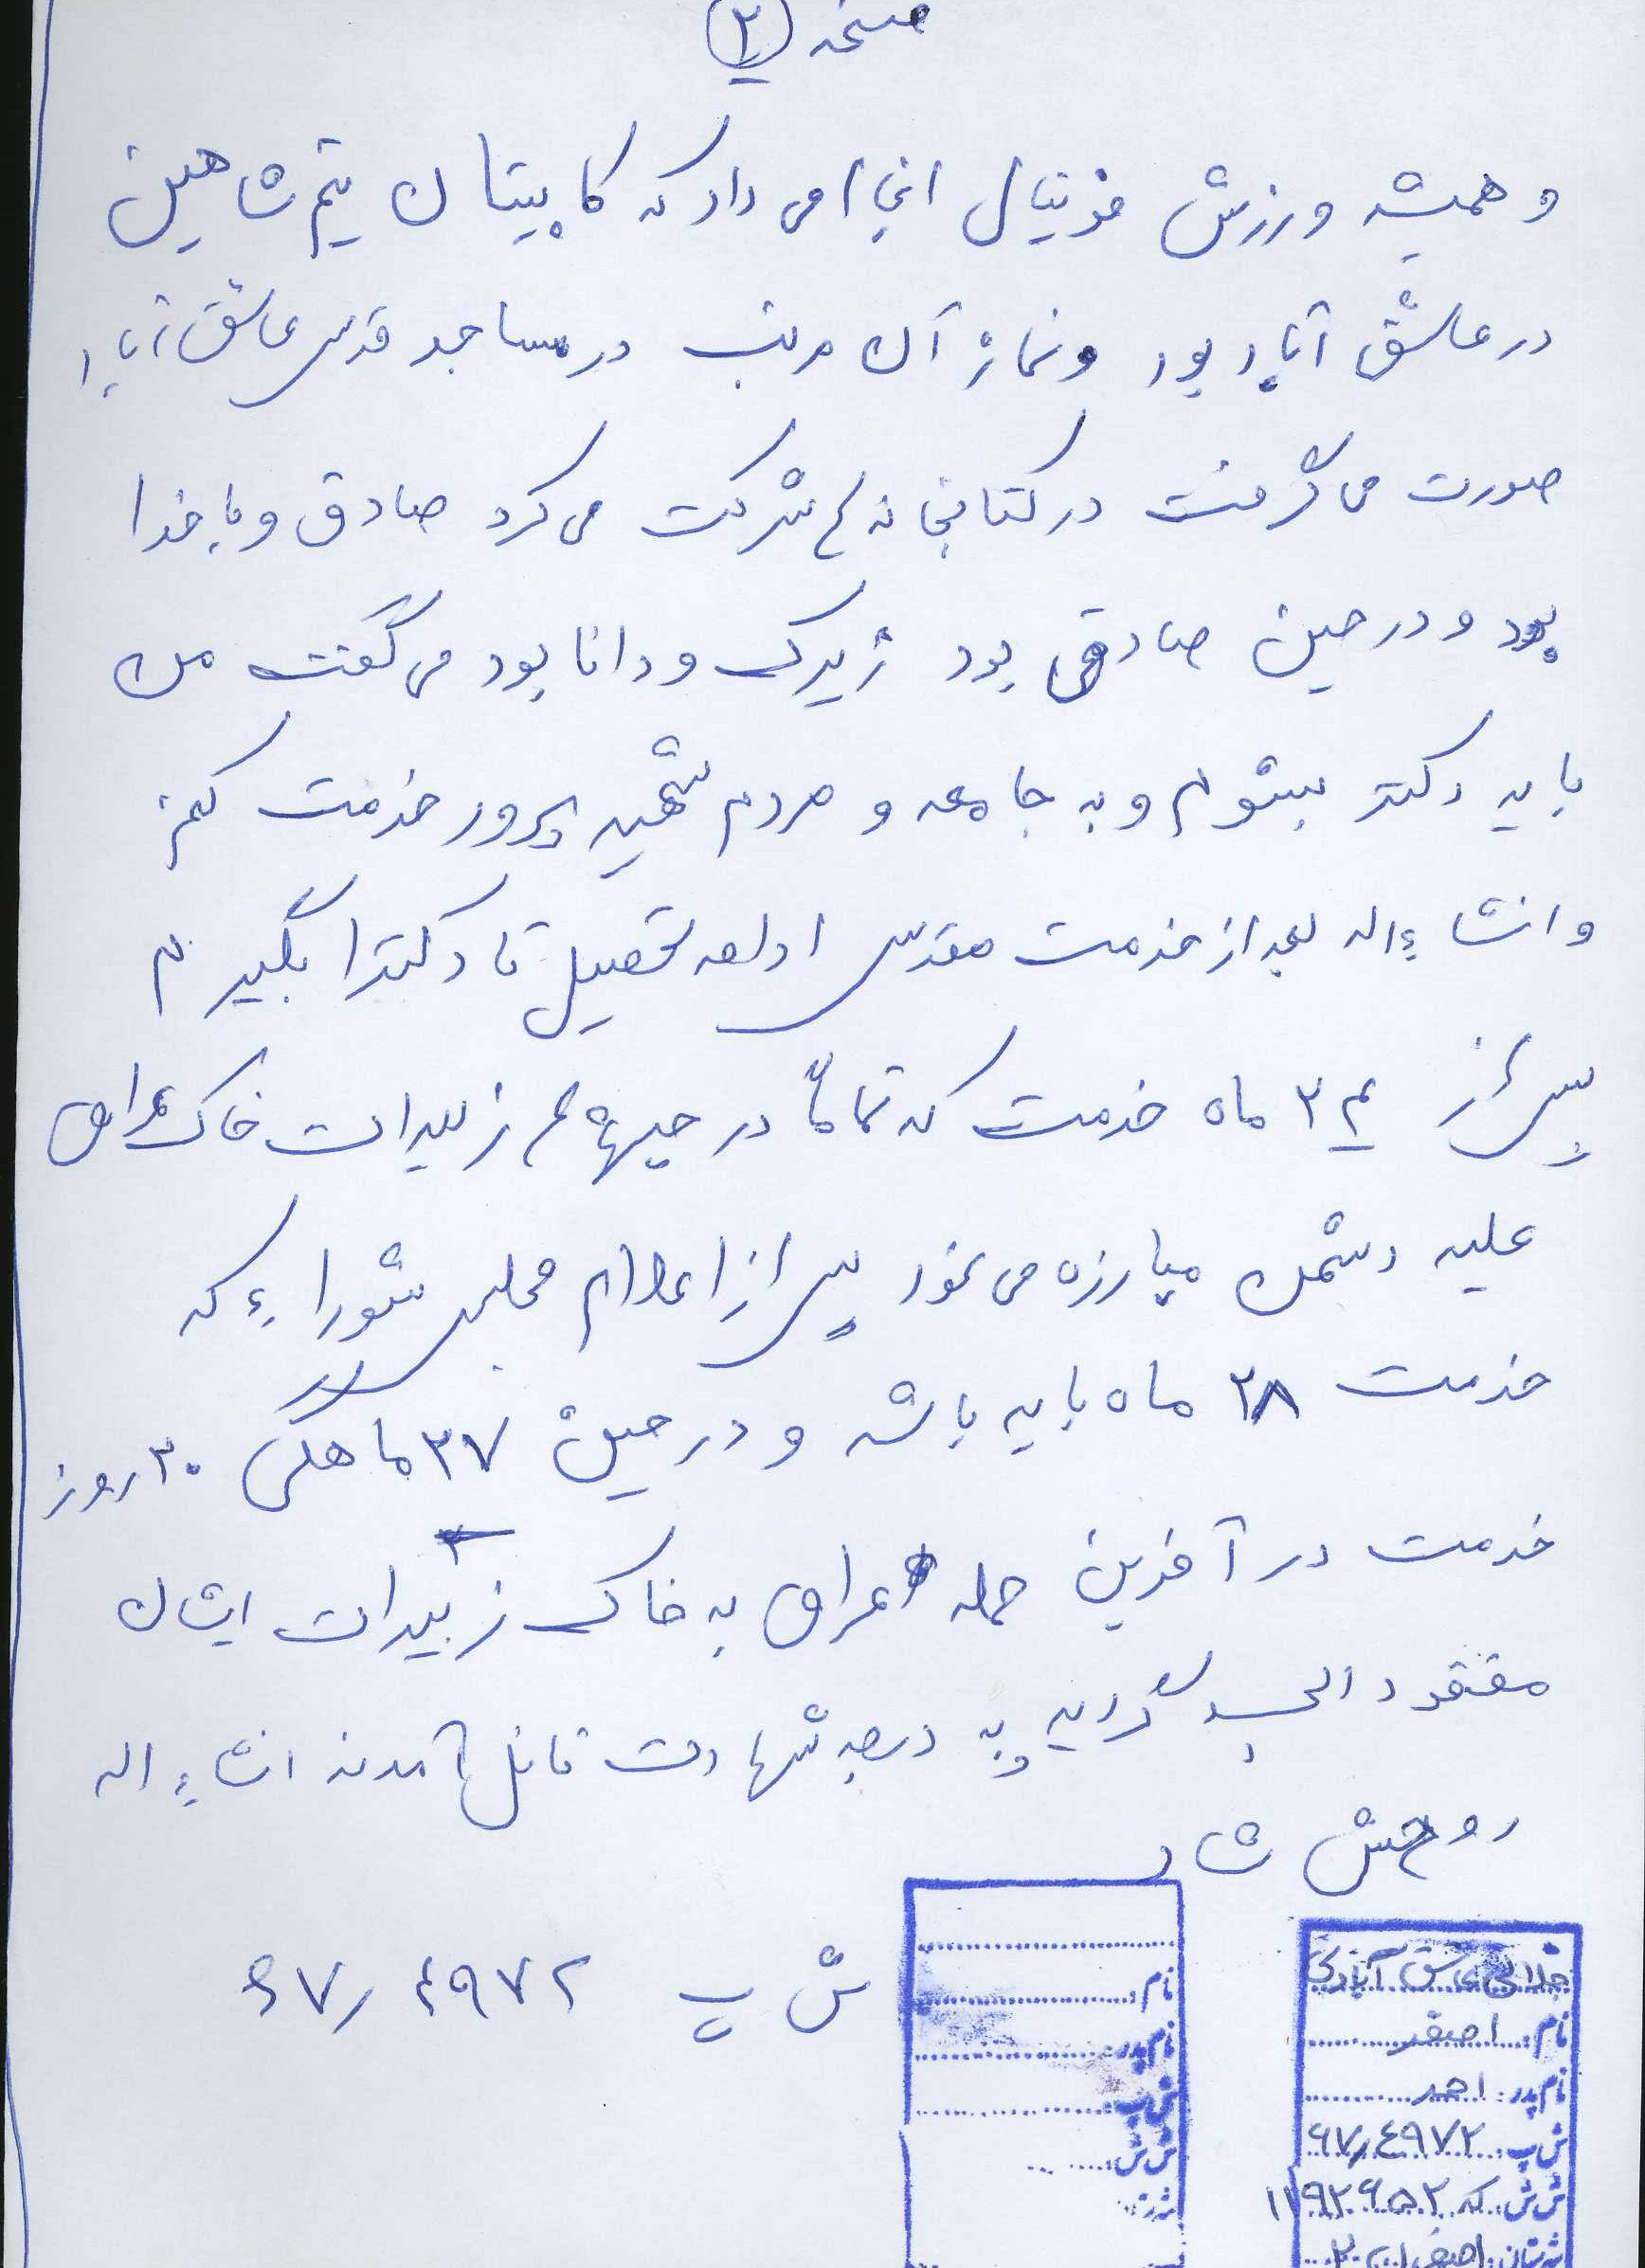 صفحه ۲
و همیشه ورزش فوتبال انجام می داد که کاپیتان تیم شاهین
در عاشق آباد بود و نماز آن مرتب در مساجد قدس عاشق آباد
صورت می گرفت در کتابخانه ها شرکت می کرد صادق و با خدا
بود و در حین صادقی بود زیرک و دانا بود می گفت من
باید دکتر بشوم و به جامعه و مردم شهید پرور خدمت کنم
و انشاءاله بعد از خدمت مقدس ادامه تحصیل تا دکترا بگیرم
پس از ۲۴ ماه خدمت که تماماً در جبهه های زبیدات خاک عراق
علیه دشمن مبارزه می نمود پس از اعلام مجلس شوراء که
خدمت ۲۸ ماه باید باشد و در حین ۲۷ ماهگی ۲۰ روز
خدمت در آخرین حمله عراق به خاک زبیدات ایشان
مفقود الجسد گردید و به درجه شهادت نائل آمدند انشاءاله
روحش شاد
ش پ ۶۷٫۴۹۷۲
جلالی عاشق آبادی
نام: اصغر
نام پدر: احمد
ش پ: ۶۷٫۴۹۷۲
ش ش: کد ۱۱۹۲۹۵۲
شهرستان: اصفهان ۲
نام:
نام پدر:
ش پ:
ش ش: